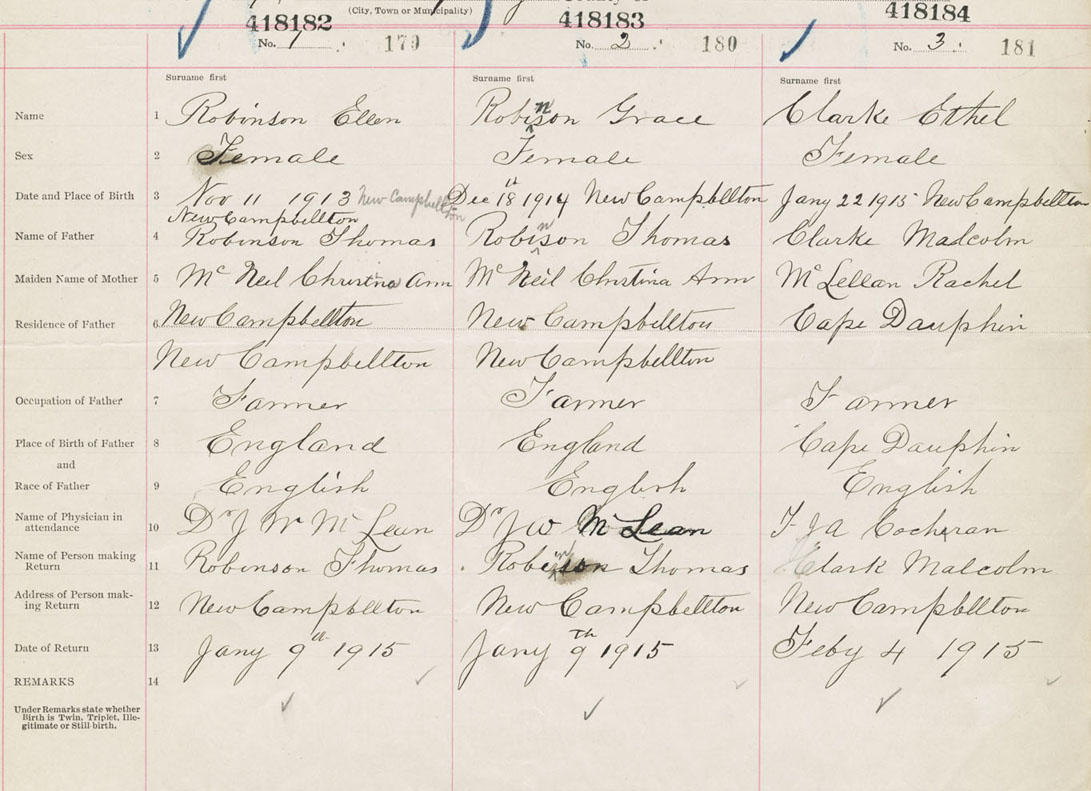 (City, Town or Municipality)
418182 418183 418184
No. 1 179 No. 2 180 No. 3 181
Surname first Surname first Surname first
Name 1 Robinson Ellen Robinson Grace Clarke Ethel
Sex 2 Female Female Female
Date and Place of Birth 3 Nov 11 1913 New Campbellton Dec 18th 1914 New Campbellton Jany 22 1915 New Campbellton
New Campbellton
Name of Father 4 Robinson Thomas Robinson Thomas Clarke Malcolm
Maiden Name of Mother 5 Mc Neil Christina Ann Mc Neil Christina Ann Mc Lellan Rachel
Residence of Father 6 New Campbellton New Campbellton Cape Dauphin
New Campbellton New Campbellton
Occupation of Father 7 Farmer Farmer Farmer
Place of Birth of Father 8 England England Cape Dauphin
and
Race of Father 9 English English English
Name of Physician in
attendance 10 Dr J W Mc Lean Dr J W Mc Lean J A Cocheran
Name of Person making
Return 11 Robinson Thomas Robinson Thomas Clark Malcolm
Address of Person mak-
ing Return 12 New Campbellton New Campbellton New Campbellton
Date of Return 13 Jany 9th 1915 Jany 9th 1915 Feby 4 1915
REMARKS 14
Under Remarks state whether
Birth is Twin, Triplet, Ille-
gitimate or Still-birth.